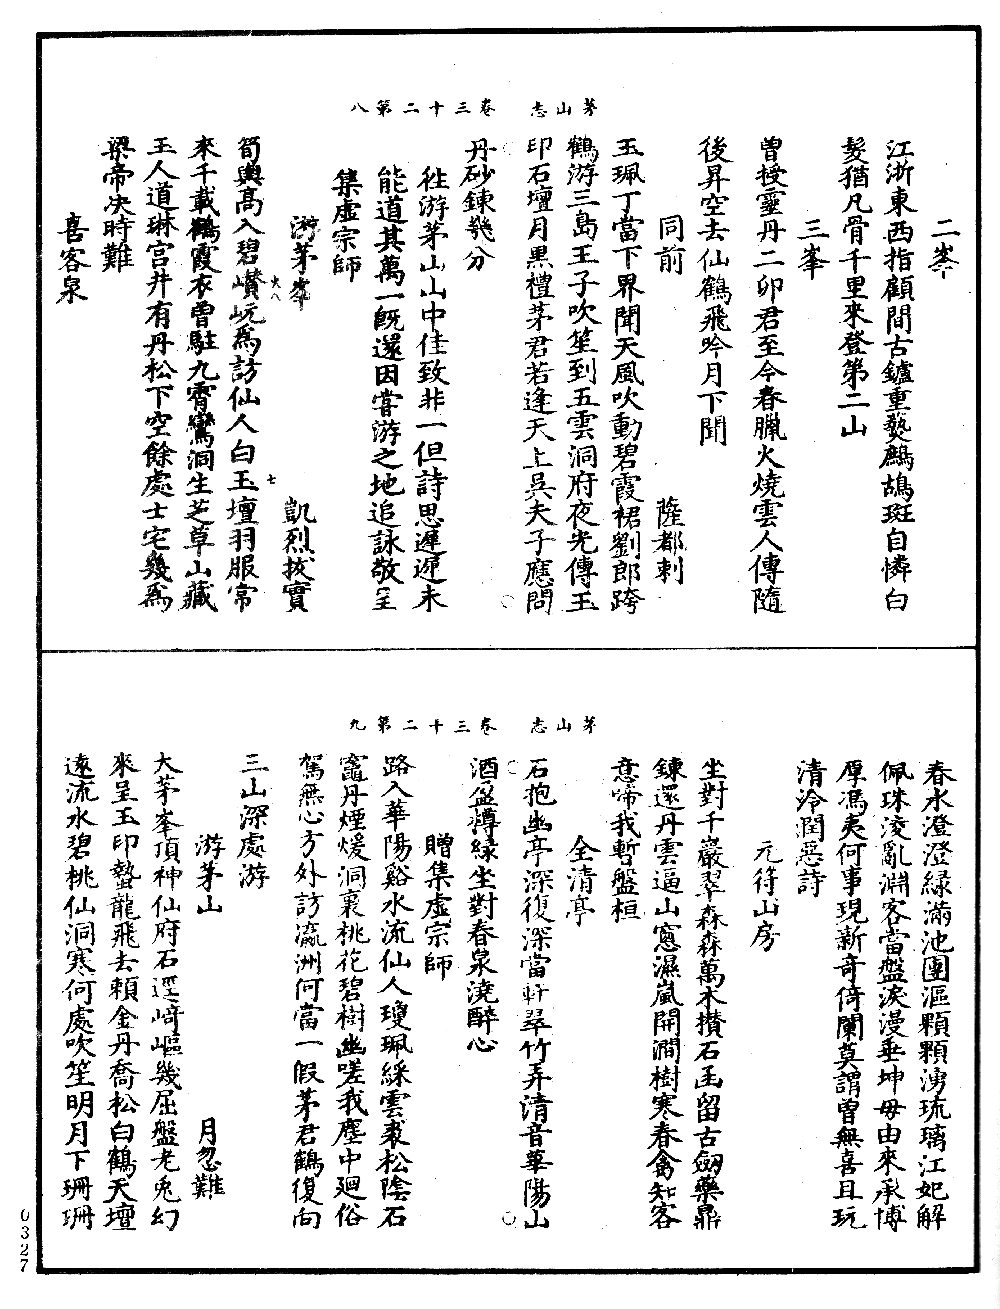 茅山志　卷三十二第八
二峯
江浙東西指顧間古鑪重爇鷓鴣斑自憐白
髮猶凡骨千里來登第二山
三峯
曾授靈丹二卯君至今春臘火燒雲人傳隨
後昇空去仙鶴飛吟月下聞
同前　薩都剌
玉珮丁當下界聞天風吹動碧霞裙劉郎跨
鶴游三島王子吹笙到五雲洞府夜光傳玉
印石壇月黑禮茅君若逢天上吳夫子應問
丹砂鍊幾分
往游茅山山中佳致非一但詩思遲遲未
能道其萬一旣還因嘗游之地追詠敬呈
集虛宗師
游茅峯　凱烈拔實
大八
筍輿高入碧巑岏爲訪仙人白玉壇羽服常
七
來千載鶴霞衣曾駐九霄鸞洞生芝草山藏
玉人道琳宮井有丹松下空餘處士宅幾爲
梁帝决時難
喜客泉
茅山志　卷三十二第九
春水澄澄緑滿池團漚顆顆湧琉璃江妃解
佩珠淩亂淵客當盤淚漫垂坤毋由來承博
厚馮夷何事現新奇倚闌莫謂曾無喜且玩
清泠潤惡詩
元符山房
坐對千巖翠森森萬木攅石函留古劒藥鼎
鍊還丹雲逼山窻濕嵐開澗樹寒春禽知客
意啼我暫盤桓
全清亭
石抱幽亭深復深當軒翠竹弄清音華陽山
酒盈罇緑坐對春泉澆醉心
贈集虛宗師
路入華陽谿水流仙人瓊珮綵雲裘松陰石
竈丹煙煖洞裏桃花碧樹幽嗟我塵中廻俗
駕無心方外訪瀛洲何當一假茅君鶴復向
三山深處游
游茅山　月忽難
大茅峯頂神仙府石逕﨑嶇幾屈盤老兎幻
來呈玉印蟄龍飛去賴金丹喬松白鶴天壇
遠流水碧桃仙洞寒何處吹笙明月下珊珊
0327